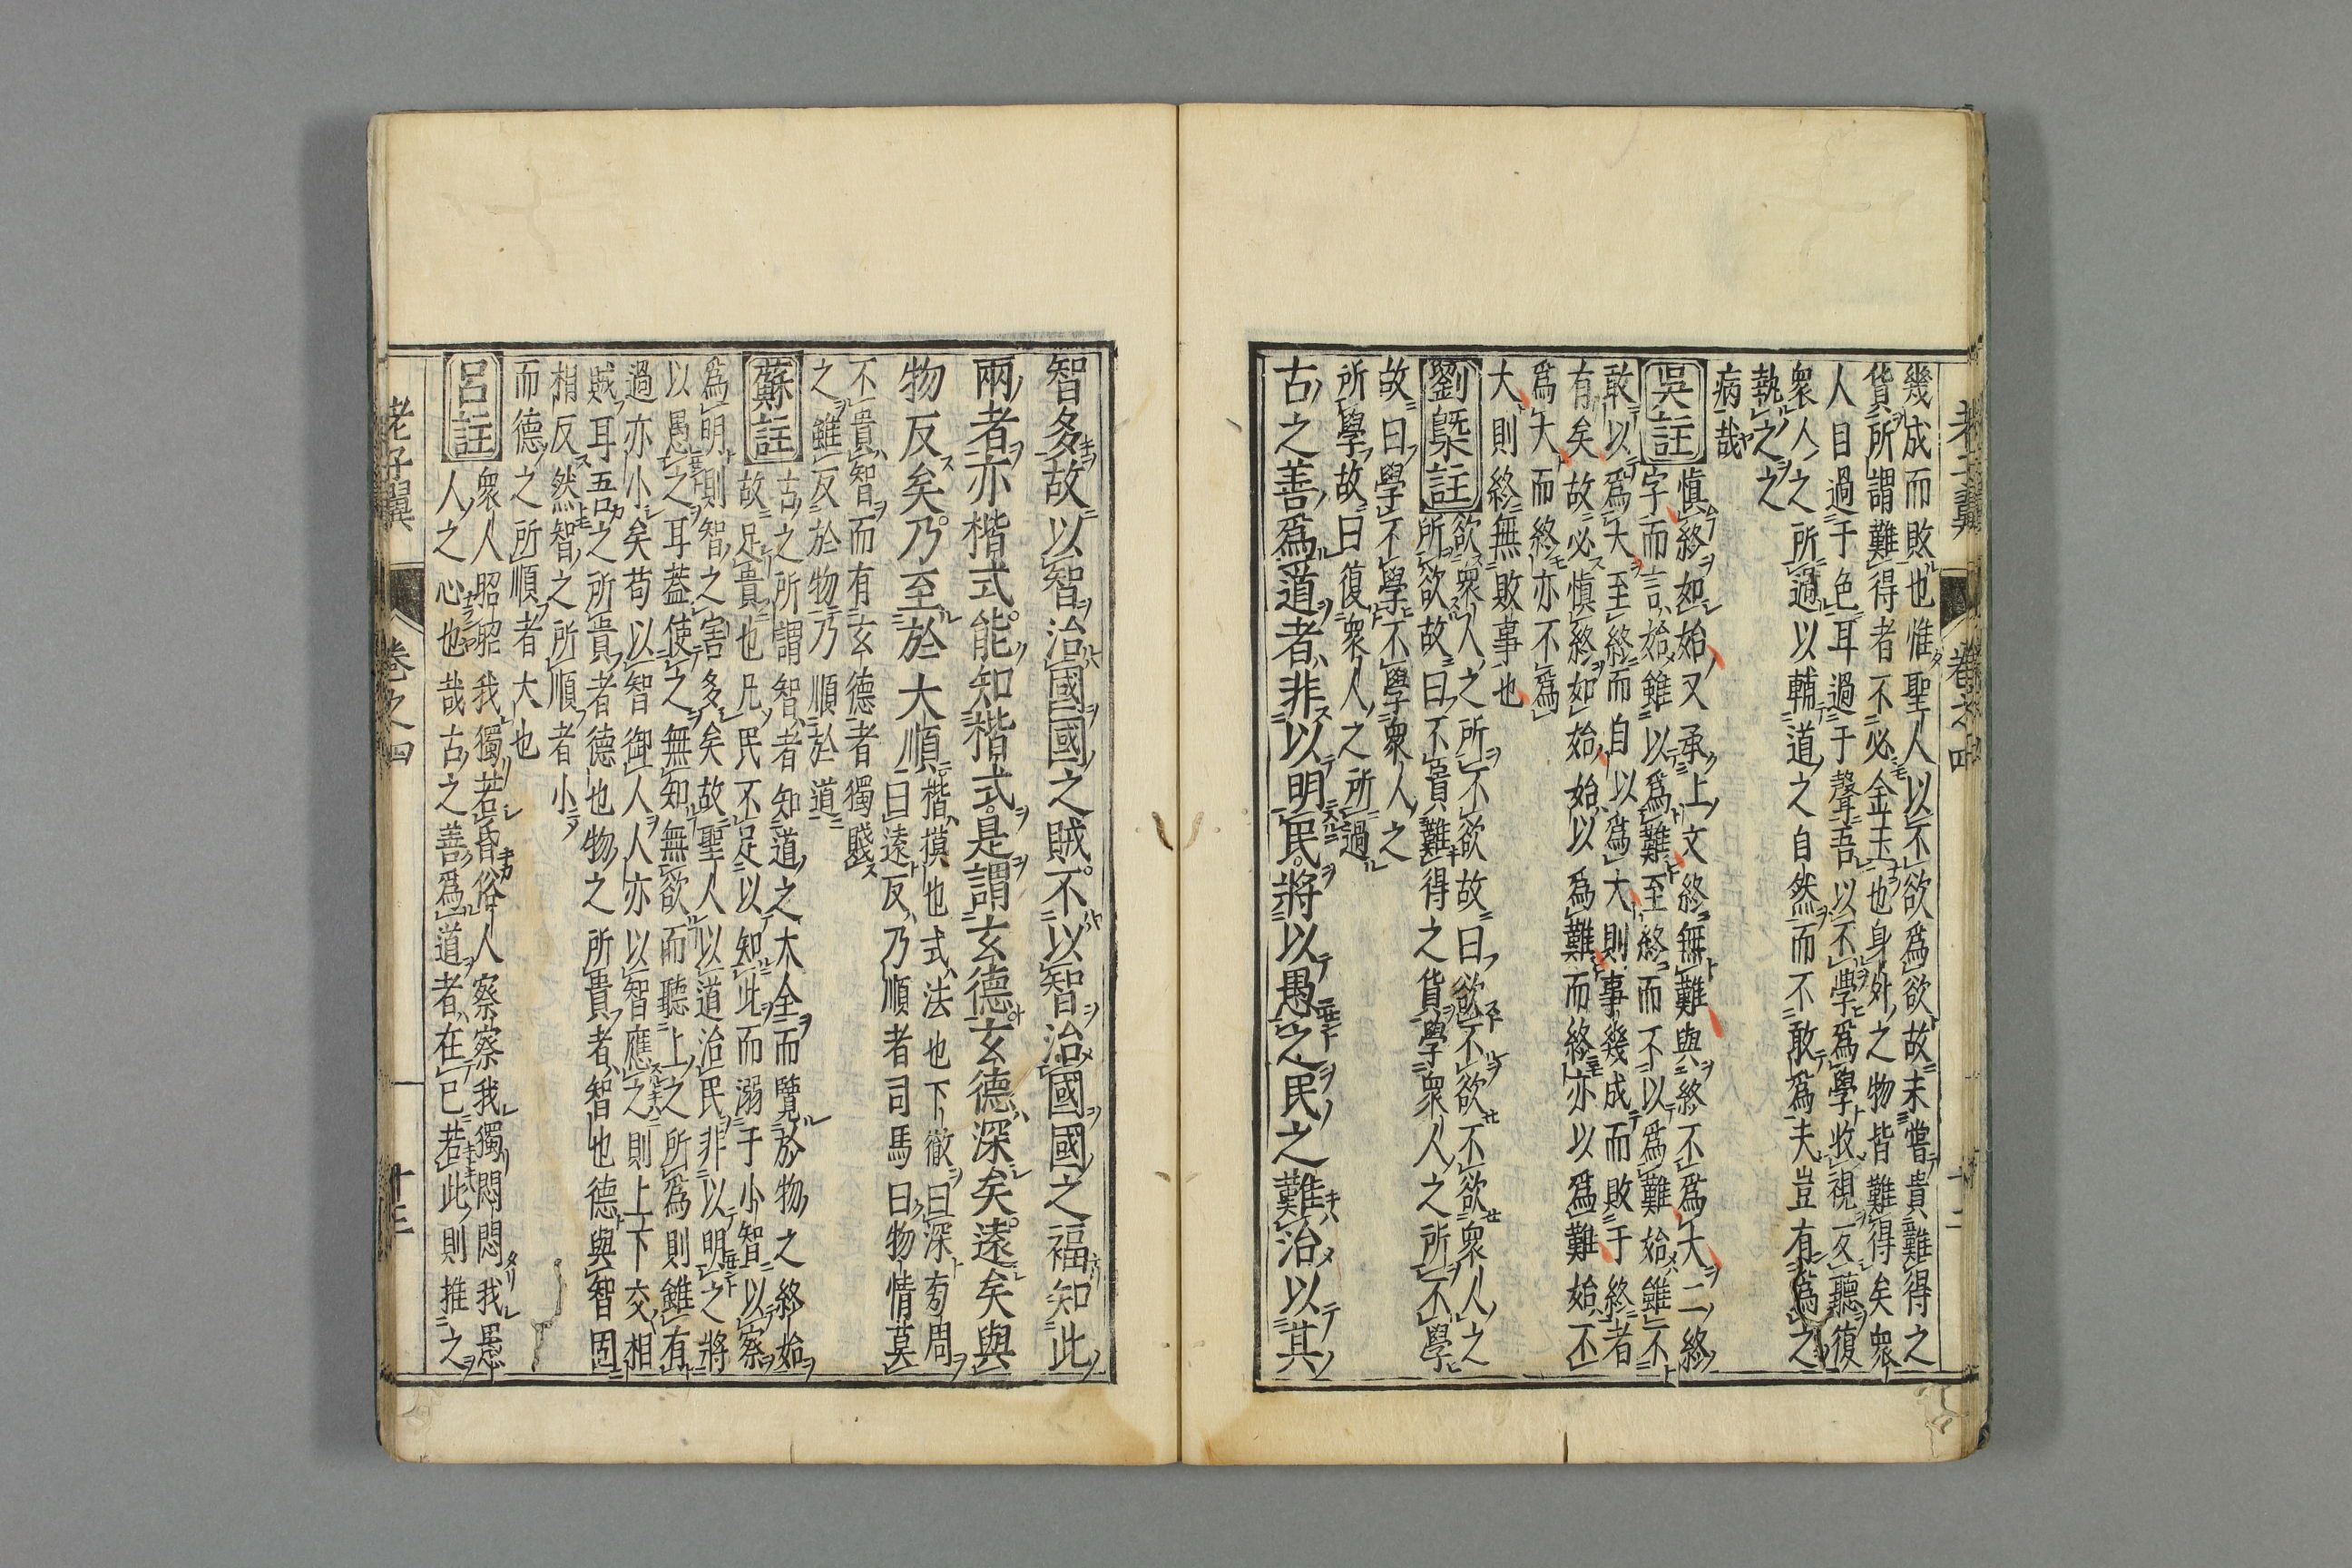 幾成而敗也惟聖人以不欲爲欲故未嘗貴難得之
貨所謂難得者不必金玉也身外之物皆難得矣衆
人目過于色耳過于聲吾以不學爲學收視反聽復
衆人之所過以輔道之自然而不敢爲夫豈有爲之
執之之
病哉
吳註
愼終如始又承上文終無難與終不爲大二終
字而言始雖以爲難至終而不以爲難始雖不
敢以爲大至終而自以爲大則事幾成而敗于終者
有矣故必愼終如始始以爲難而終亦以爲難始不
爲大而終亦不爲
大則終無敗事也
劉槩註
欲衆人之所不欲故曰欲不欲不欲衆人之
所欲故曰不貴難得之貨學衆人之所不學
故曰學不學不學衆人之
所學故曰復衆人之所過
古之善爲道者非以明民將以愚之民之難治以其
智多故以智治國國之賊不以智治國國之福知此
兩者亦楷式能知楷式是謂玄德玄德深矣遠矣與
物反矣乃至於大順
楷摸也式法也下徹曰深旁周
曰遠反乃順者司馬曰物情莫
不貴智而有玄德者獨賤
之雖反於物乃順於道
蘇註
古之所謂智者知道之大全而覽於物之終始
故足貴也凡民不足以知此而溺于小智以察
爲明則智之害多矣故聖人以道治民非以明之將
以愚之耳蓋使之無知無欲而聽上之所爲則雖有
過亦小矣苟以智御人人亦以智應之則上下交相
賊耳吾之所貴者德也物之所貴者智也德與智固
相反然智之所順者小
而德之所順者大也
呂註
衆人昭昭我獨若昏俗人察察我獨悶悶我愚
人之心也哉古之善爲道者在已若此則推之
老子翼
卷之四
十三
老子翼
卷之四
十二